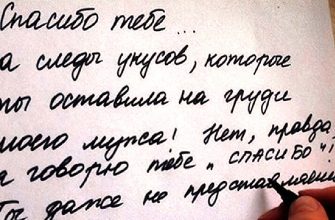 Спасибо тебе...
а следы укусов, которые
ты оставила на груди
моего мужа! Нет, правда,
я говорю тебе "СПАСИБО"!
Ты даже не представляешь